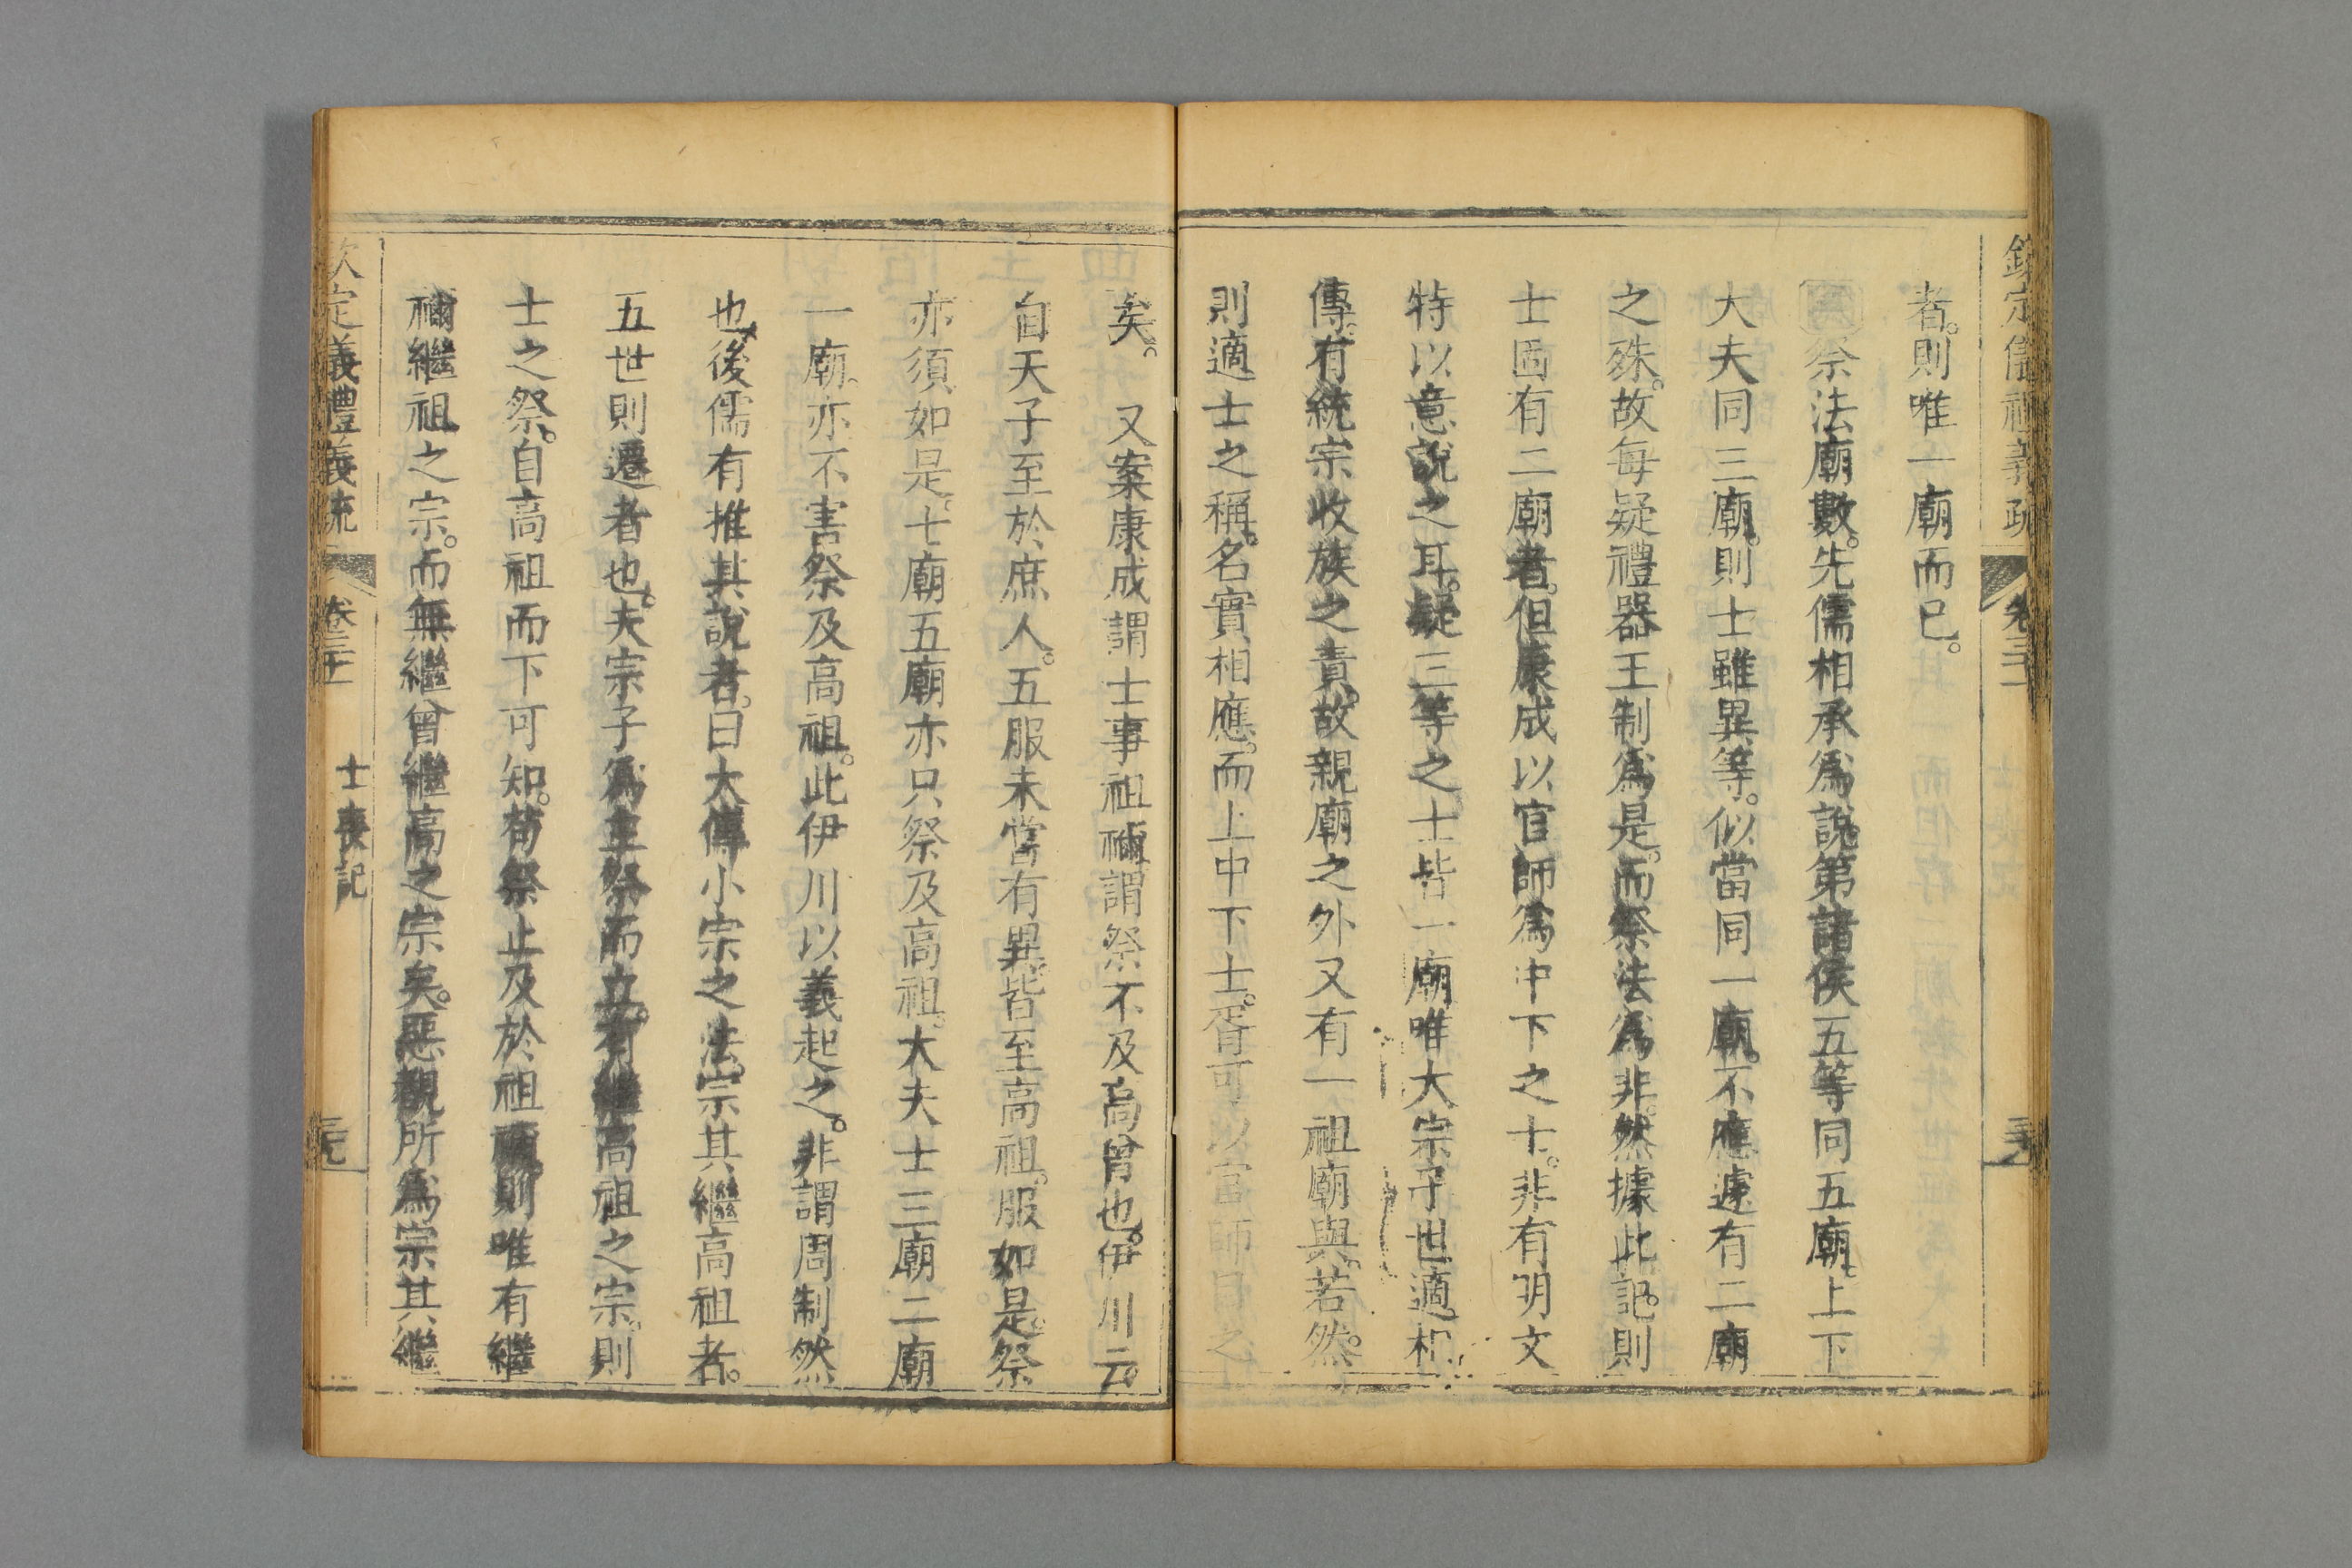 欽定儀禮義疏 卷三十一
者。則唯一廟而已。
案祭法廟數。先儒相承爲說。第諸侯五等同五廟。上下
大夫同三廟。則士雖異等。似當同一廟。不應遽有二廟
之殊。故每疑禮器王制爲是。而祭法爲非。然據此記。則
士固有二廟者。但康成以官師爲中下之士。非有明文
特以意說之耳。疑三等之士皆一廟。唯大宗子世適相
傳。有統宗收族之責。故親廟之外又有一祖廟與。若然。
則適士之稱。名實相應。而上中下士。胥可以官師目之
矣。 又案康成謂士事祖禰。謂祭不及高曾也。伊川云。
自天子至於庶人。五服未嘗有異。皆至高祖。服如是。祭
亦須如是。七廟五廟亦只祭及高祖。大夫士三廟二廟
一廟。亦不害祭及高祖。此伊川以義起之。非謂周制然
也。後儒有推其說者。曰大傳小宗之法。宗其繼高祖者。
五世則遷者也。夫宗子爲主祭而立。有繼高祖之宗。則
士之祭。自高祖而下可知。苟祭止及於祖禰。則唯有繼
禰繼祖之宗。而無繼曾繼高之宗矣。惡覩所爲宗其繼
欽定義禮義疏 卷三十一 士喪記